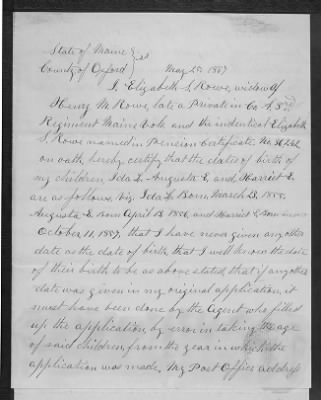 State of Maine } ss
County of Oxford } May 25. 1867
I Elizabeth S. Rowe, widow of
Henry M Rowe, late a Private in Co A,
Regiment Maine Vols and the indentical Elizabeth
S. Rowe named in Pension Certificate No.
on oath, hereby certify that the dates of birth of
my children Ida L. Augusta E. and Harriet E.
are as follows, viz. Ida L. Born March 23,
Augusta E. Born April 13 1856, and Harriet E. Born
October 11. 1857, that I have never given any other
date as the date of birth that I well know the date
of their birth to be as above stated that if any other
date was given in my original application, it
must have been done by the Agent who filled
up the application by error in taking the age
of said children from the year in which the
application was made. My Post Office address